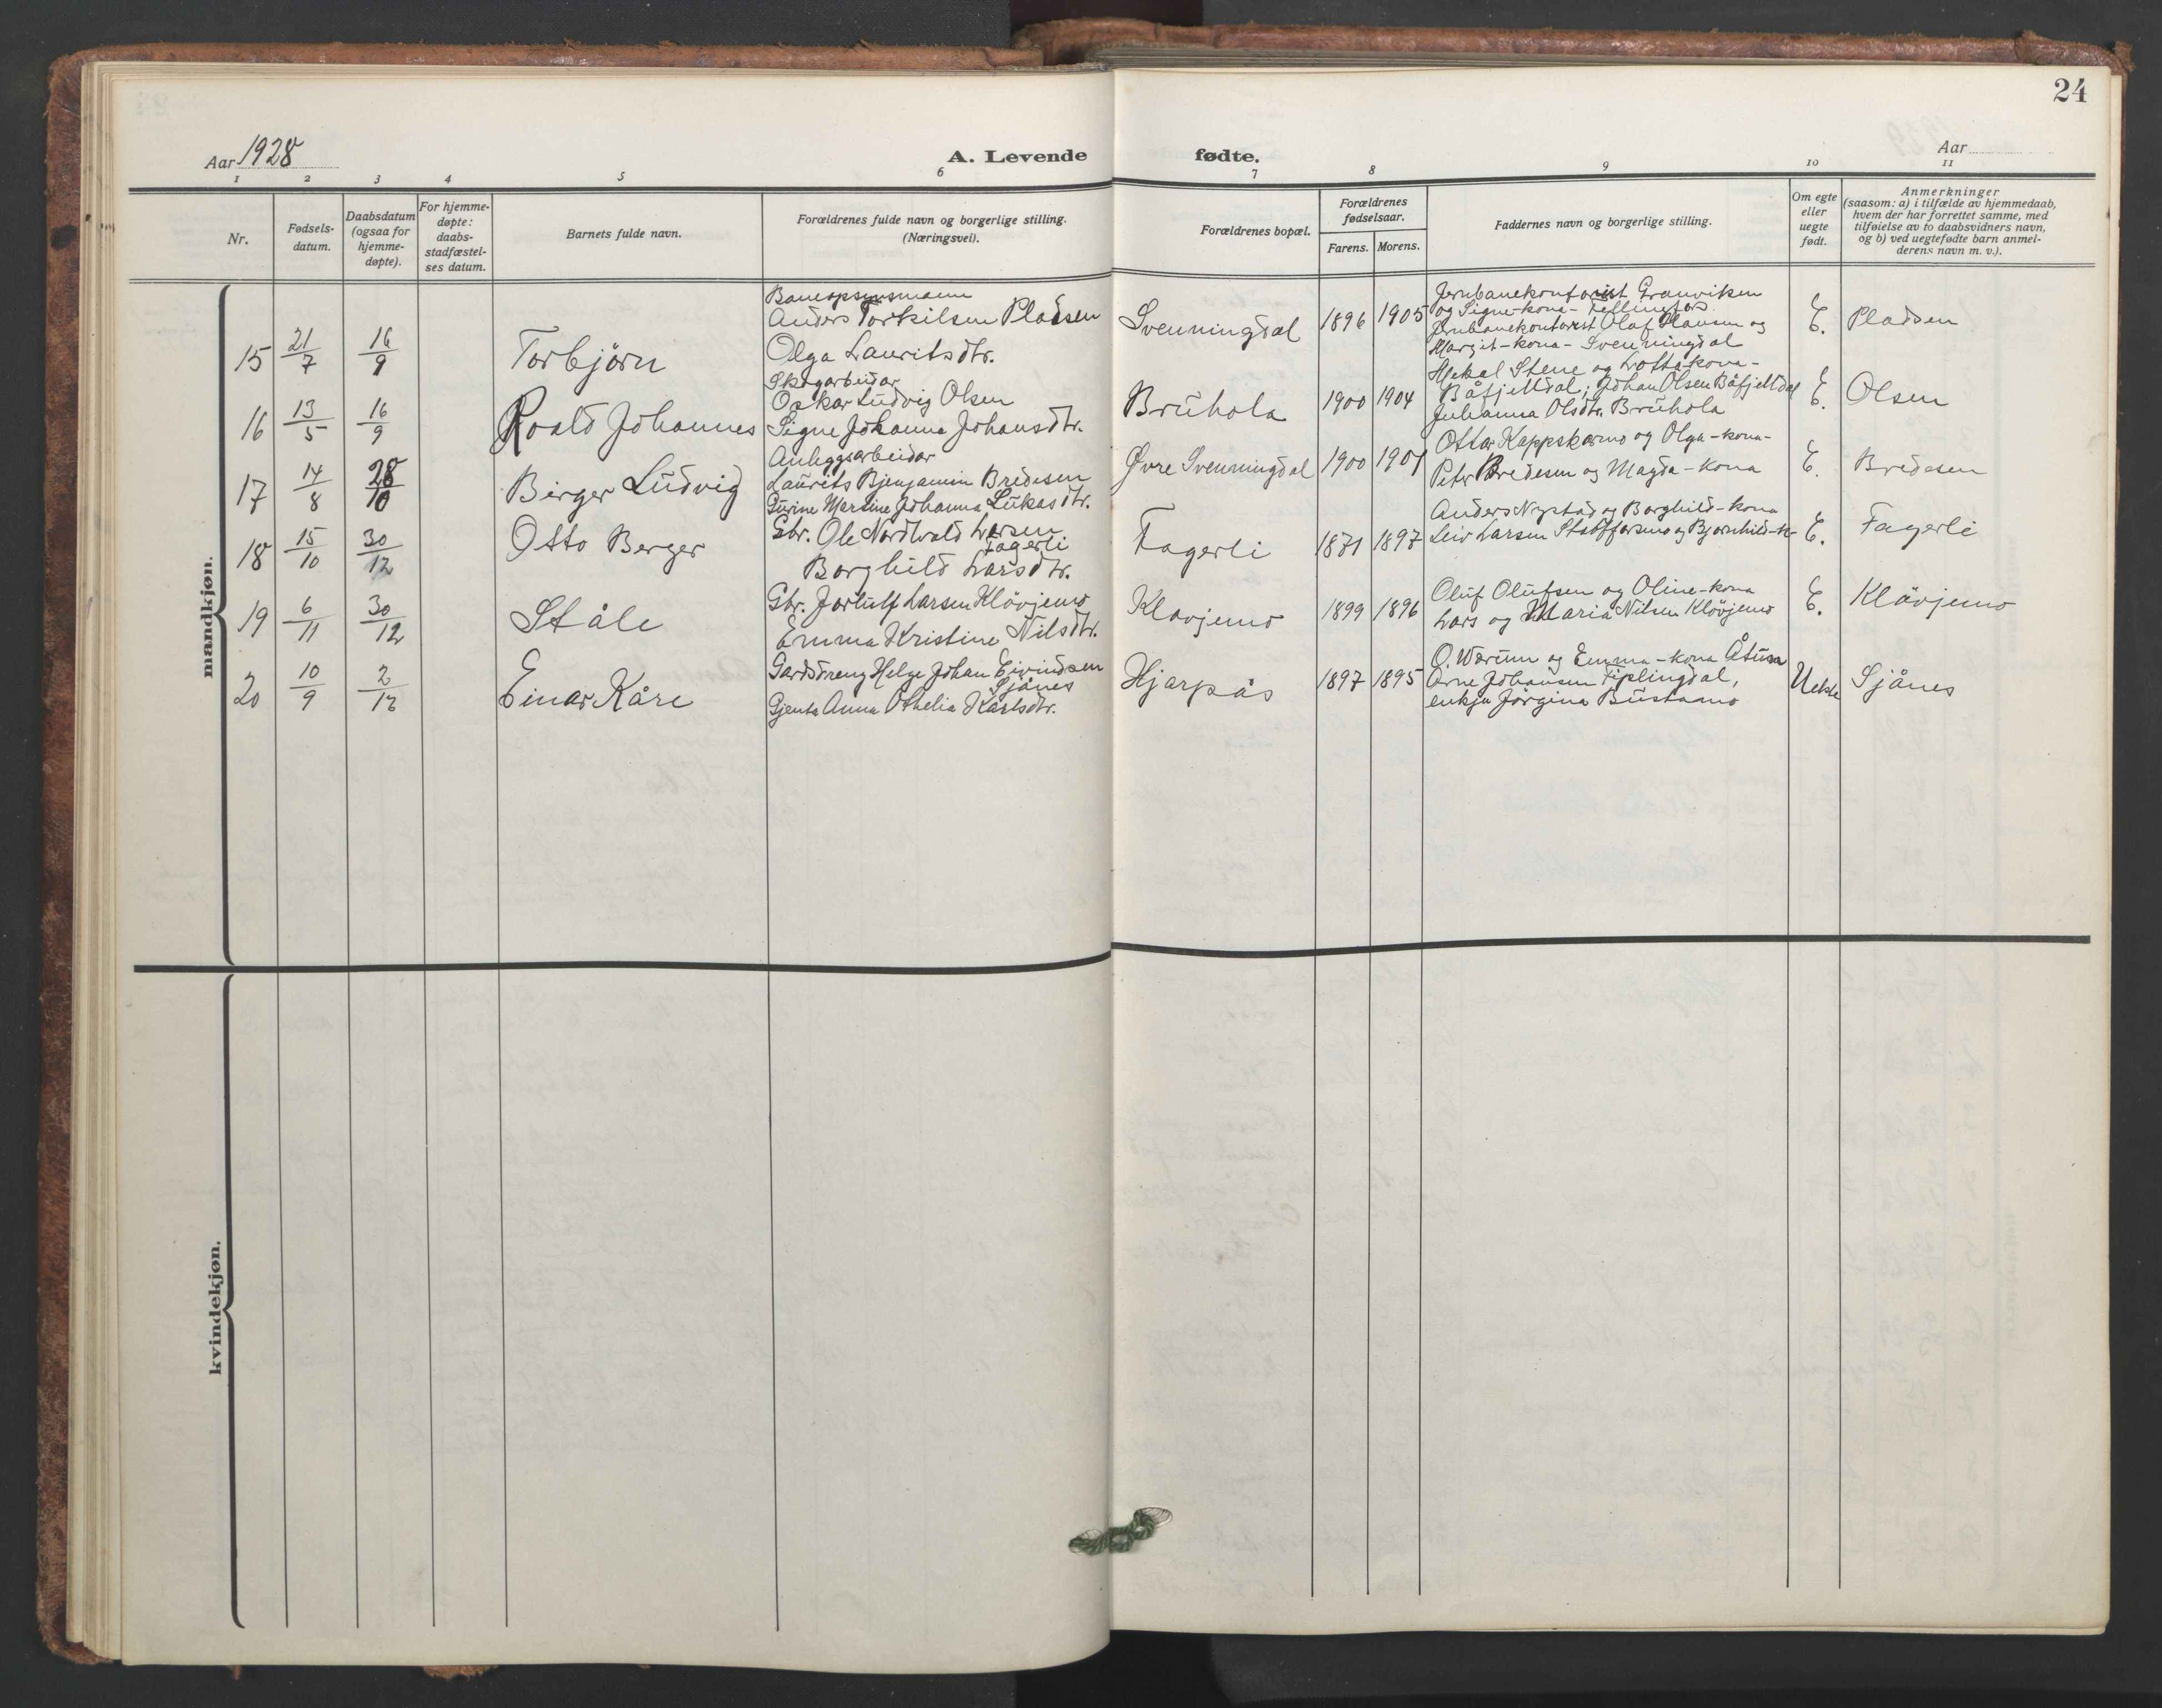 24
Aar 1928
A. Levende fødte.
Aar
1 2 3 4 5 6 7 8 9 10 11
Nr.
Fødsels-
datum.
Daabsdatum
(ogsaa for
hjemme-
døpte).
For hjemme-
døpte:
daabs-
stadfæstel-
ses datum.
Barnets fulde navn.
Forældrenes fulde navn og borgerlige stilling.
(Næringsvei).
Forældrenes bopæl.
Forældrenes
fødselsaar.
Farens. Morens.
Faddernes navn og borgerlige stilling.
Om egte
eller
uegte
født.
Anmerkninger
(saasom: a) i tilfælde av hjemmedaab,
hvem der har forrettet samme, med
tilføielse av to daabsvidners navn,
og b) ved uegtefødte barn anmel-
derens navn m. v.).
mandkjøn.
15 21/7 16/9 Torbjörn
Baneopsynsmann
Anders Torkilsen Pladsen
Olga Lauritsdtr.
Svenningdal 1896 1905
Jernbanekontorist Granviken
og Signe-kona-
Jernbanekontorist Olaf Hansen og
Margit-kona-Svenningdal
E. Pladsen
16 13/5 16/9 Roald Johannes
Skogarbeidar
Oskar Ludvig Olsen
Signe Johanna Johansdtr.
Bruhola 1900 1904
Stene og Lotta kona-
Båfjelldal; Johan Olsen Båfjelldal
Julianna Olsdtr. Bruhola
E. Olsen
17 14/8 28/10 Birger Ludvig
Anleggsarbeidar
Laurits Bjenjamin Bredesen
Gurine Martine Johanna Lukasdtr.
Øvre Svenningdal 1900 1901
Ottar Kappskarmo og Olga-kona-
Petr Bredesen og Magda-kona
E. Bredesen
18 15/10 30/12 Otto Berger
Gbr. Ole Nordtvald Larsen
Fagerli
Borghild Larsdtr.
Fagerli 1871 1897
Anders Nystad og Borghild-kona
Leiv Larsen Staffarsmo og Bjørnhild-k-
E. Fagerli
19 6/11 30/12 Ståle
Gbr. Jortulf Larsen Klövjemo
Emma Kristine Nilsdtr.
Klovjemo 1899 1896
Oluf Olufsen og Oline-kona
Lars og Maria Nilsen Klövjemo
E. Klövjemo
20 10/9 2/12 Einar Kåre
Gardsdreng Helge Johan Eivindsen
Sjånes
Gjenta Anna Othelia Karlsdtr.
Hjarpås 1897 1895
O. Wærum og Emma-kona
Arne Johansen Fiplingdal,
enkja Jörgina Bustamo
Uekte Sjånes
kvindekjøn.